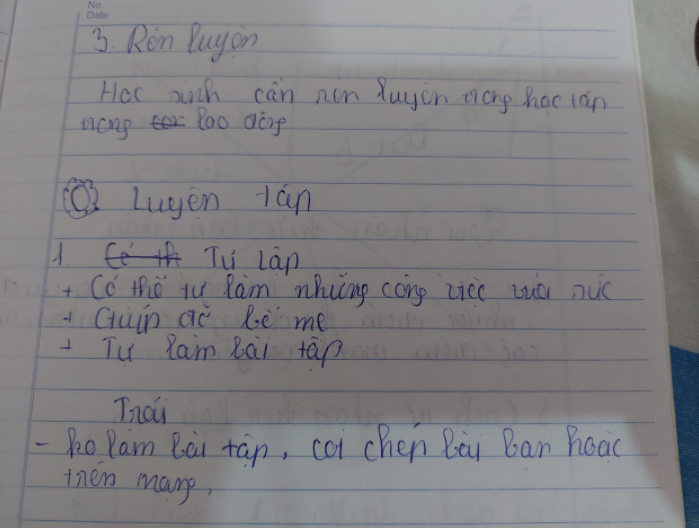 No.
Date
3. Rèn luyện
Học sinh cần rèn luyện trong học tập
trong lao động
C Luyện tập
1. Có th Tự lập
+ Có thể tự làm những công việc vừa sức
+ Giúp đỡ bố mẹ
+ Tự làm bài tập
Trái
- ko làm bài tập, coi chép bài bạn hoặc
trên mạng,